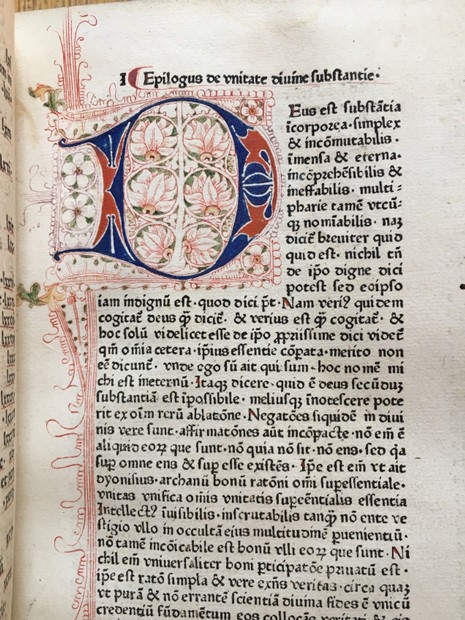 I Epilogus de vnitate diuine substantie·
Eus est substātia
īcorporea·simplex
& incōmutabilis·
īmensa & eterna·
incōprehēsibilis &
ineffabilis· multi⸗
pharie tamē vtcū⸗
qꝫ noīabilis· naꝫ
dicit breuiter quid
quid est· nichil tn̄
de ip̄o digne dici
potest sed eoipso
iam indignū est·quod dici p̄t· Nam veriꝰ quidem
cogitat̄ deus qꝫ̄ dicit̄· & verius est qꝫ̄ cogitat̄· &
hoc solū videlicet esse de ip̄o ꝓpriissime dici videt̄
qm̄ om̄ia cetera·ip̄ius essentie cōpata·merito non
eē dicunt̄· vnde ego sū ait qui sum·hoc nomē mi
chi est in eternū·Itaqꝫ dicere·quid ē deus secūduꝫ
substantiā est īpossibile· meliusqꝫ īnotescere pote
rit ex oīm rerū ablatōne·Negatōes siquidē in diui
nis vere sunt·affirmatōnes aūt incōpacte·nō em̄ ē
aliquid eorꝫ que sunt·nō quia nō sit·nō ens·sed qa
suꝑ omne ens & suꝑ esse existēs· Ip̄e est em̄ vt ait
dyonisius·archanū bonū ratōni om̄i supessentiale·
vnitas vnifica om̄is vnitatis supcēntialis essentia
Intellectꝰ īuisibilis·inscrutabilis tanqꝫ nō ente ve
stigio vllo in occultā eius multitudinē puenientiū·
nō tamē incōicabile est bonū vlli eorꝫ que sunt· Ni
chil em̄ vniuersaliter boni pticipatōne priuatū est·
ip̄e est ratō simpla & vere exn̄s veritas·circa quaꝫ
vt purā & nō errantē scientiā diuina fides ē vnicū
credentiū fūdamētum eos collocās veritati & eis